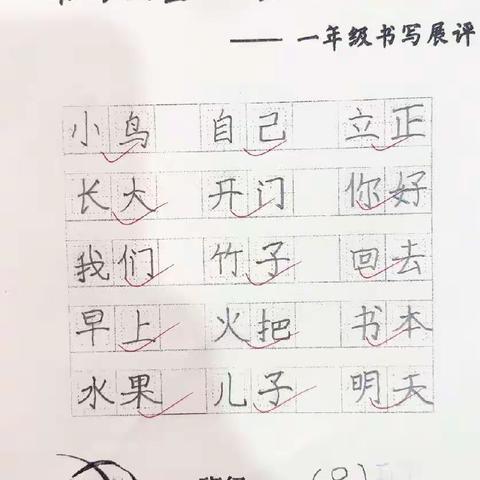 —— 一年级书写展评
小鸟 自己 立正
长大 开门 你好
我们 竹子 回去
早上 火把 书本
水果 儿子 明天